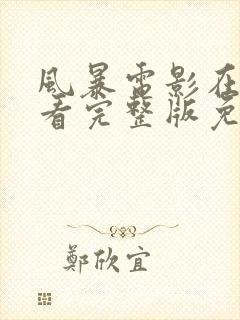 風暴電影在
看完整版免
鄭欣宜